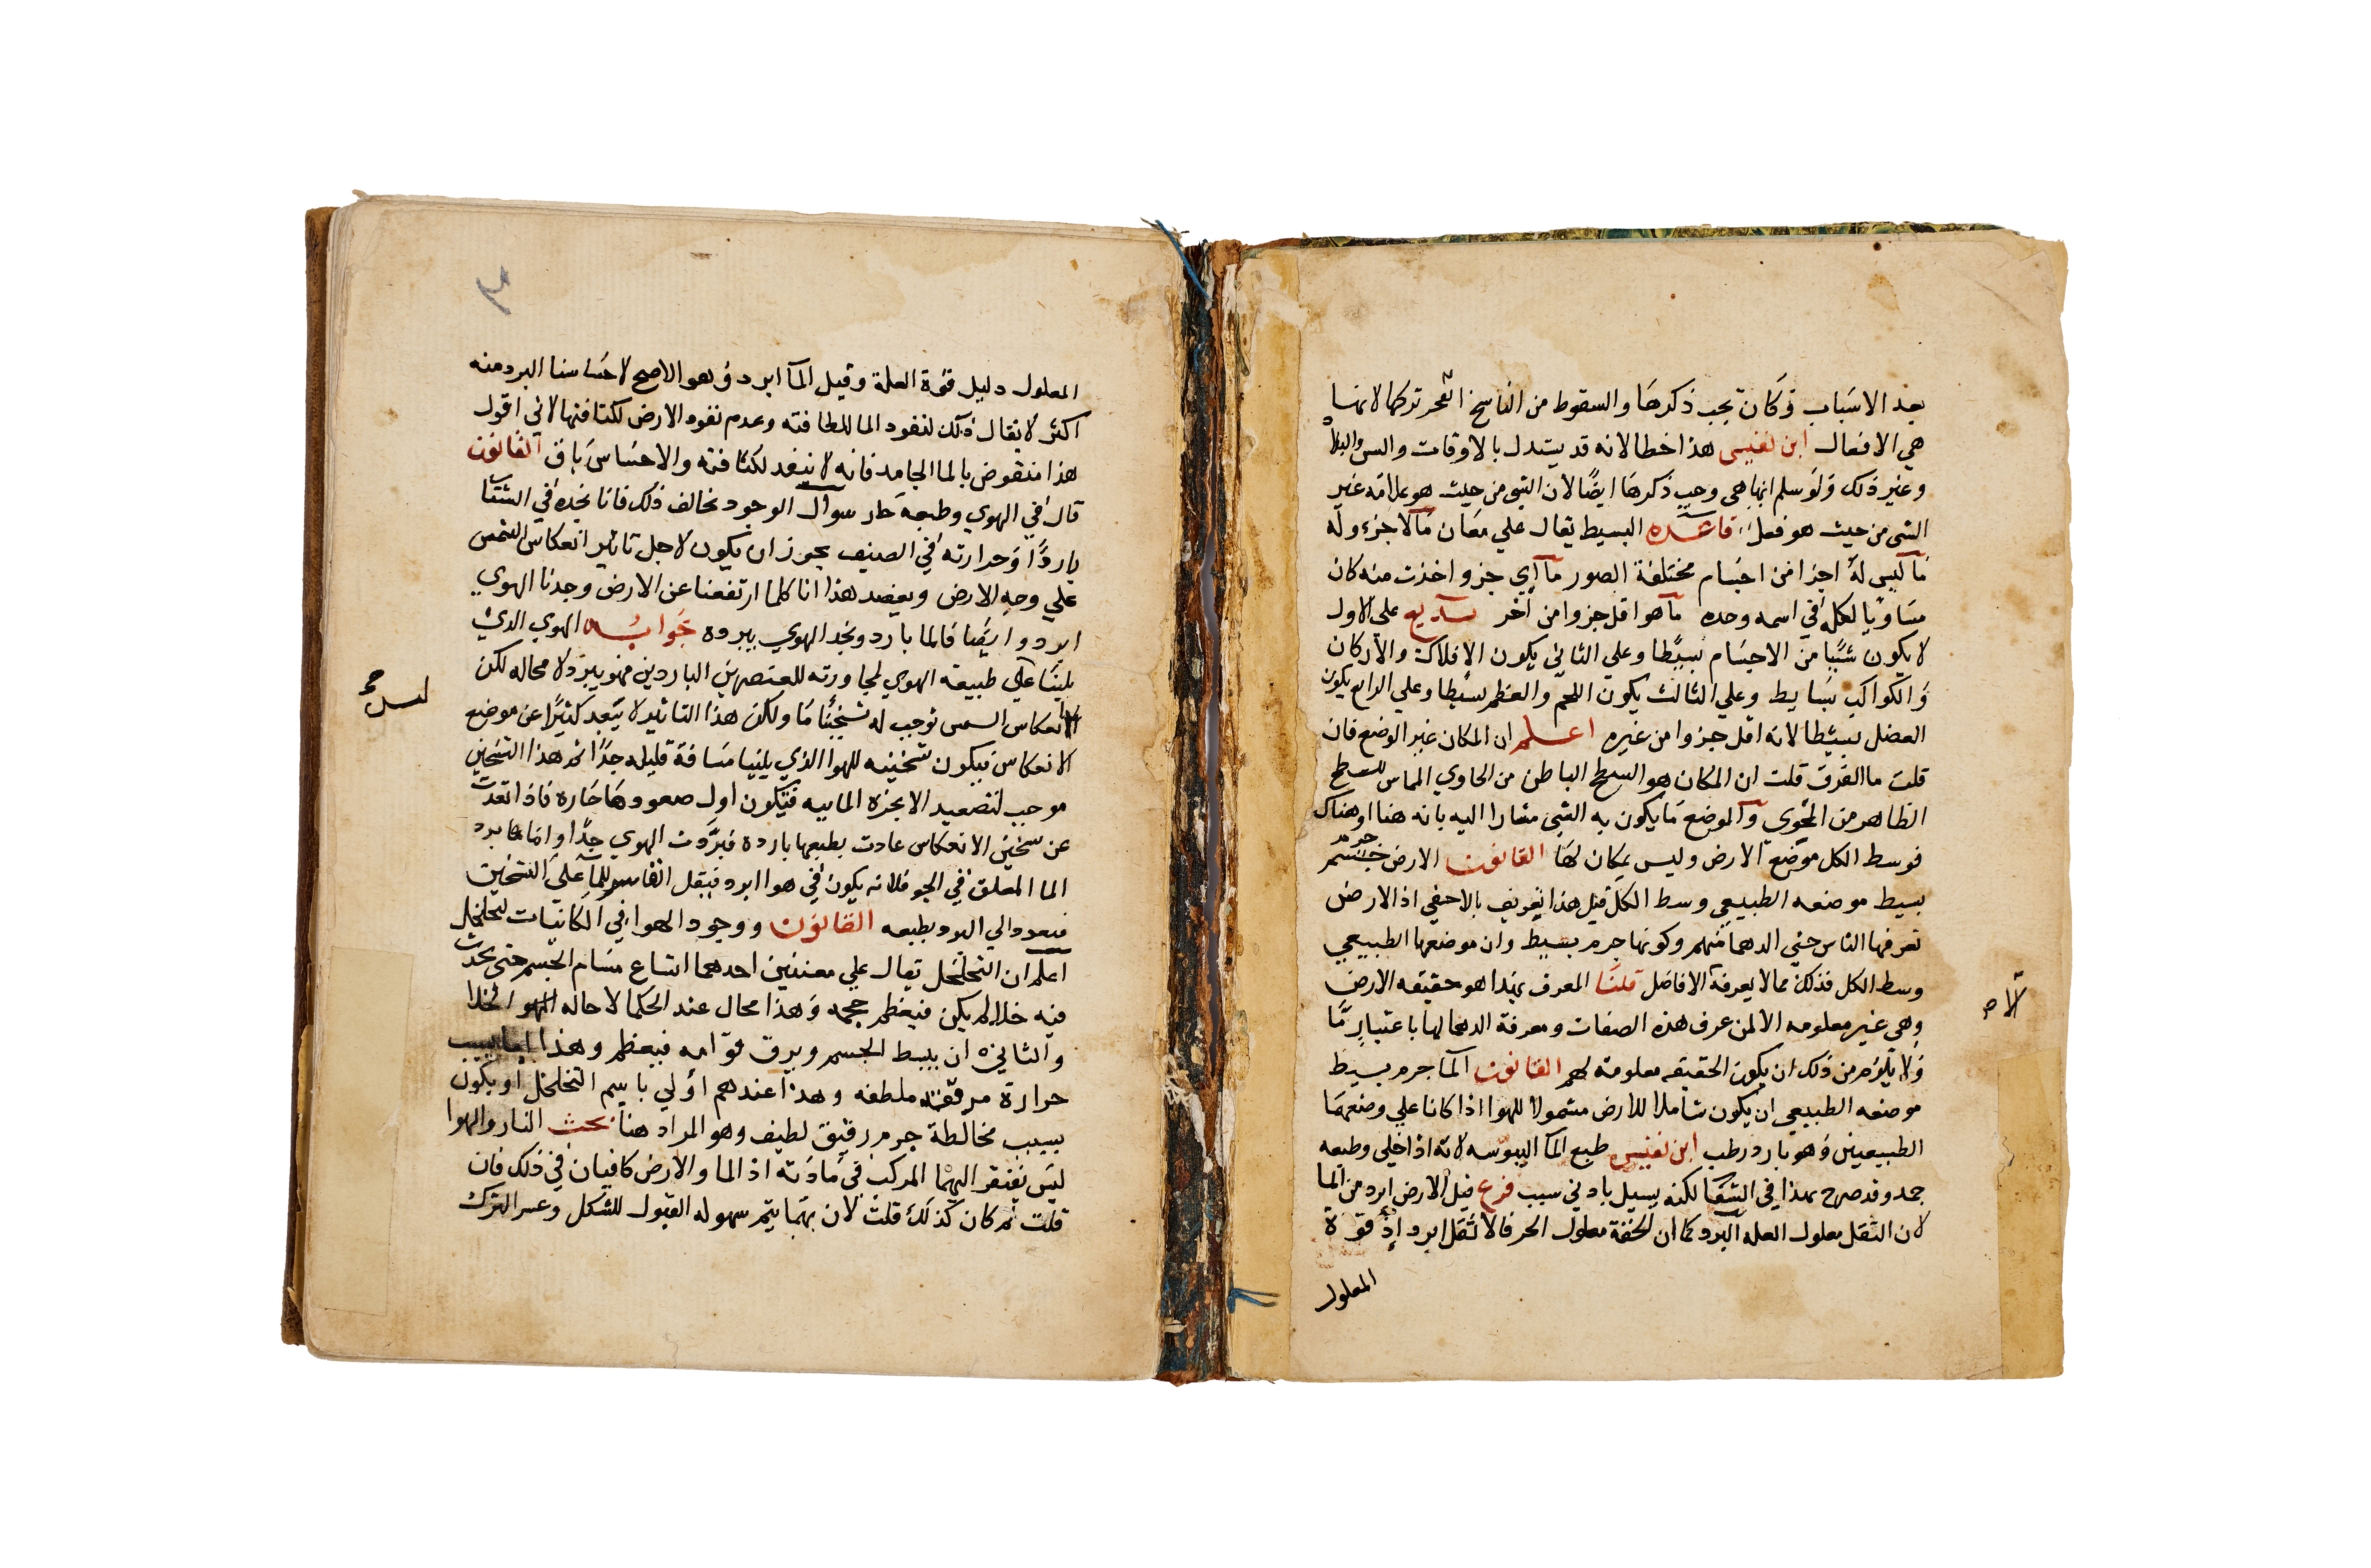 بعد الاسباب وكان يجب ذكرها والسقوط من الناسخ انحجر تركها لانها
هي الافعال ابن نفيس هذا خطا لانه قد يستدل بالاوقات والسن والبلاد
وغير ذلك ولو سلم انها هي وجب ذكرها ايضًا لان الشي من حيث هو علامة غير
الشي من حيث هو فعل قاعده البسيط يقال علي معان مآلا جزء وله
مآليس له اجزا من اجسام مختلفة الصور مآاي جزو اخذت منه كان
مساويا لكله في اسمه وحده مآهو اقل جزوا من آخر على الاول
لا يكون شيًا من الاجسام بسيطًا وعلي الثاني يكون الافلاك والاركان
والكواكب بسايط وعلي الثالث يكون اللحم والعظم بسيطا وعلي الرابع يكون
العضل بسيطا لانه اقل جزوا من غيره اعلم ان المكان غير الوضع فان
قلت ما الفرق قلت ان المكان هو السطح الباطن من الحاوي المماس للسطح
الظاهر من المحوى والموضع ما يكون به الشي مشارا اليه بانه هنا او هناك
فوسط الكل موضع الارض وليس بمكان لها القانون الارض جسم جرم
بسيط موضعه الطبيعي وسط الكل قيل هذا تعريف بالاخفي اذ الارض
تعرفها الناس حتي الدهما منهم وكونها جرم بسيط وان موضعها الطبيعي
وسط الكل فذلك مما لا يعرفة الافاضل قلنا المعرف بهذا هو حقيقه الارض
وهي غير معلومه الا لمن عرف هذه الصفات ومعرفة الدهما لها باعتبار مّا
ولا يلزم من ذلك ان يكون الحقيقه معلومة لهم القانون آلما جرم بسيط
موضعه الطبيعي ان يكون شاملا للارض مشمولا للهوا اذا كانا علي وضعهما
الطبيعيين وهو بارد رطب ابن نفيس طبع المآ اليبوسه لانه اذا خلي وطبعه
جمد وقد صرح بهذا في الشفا لكنه يسيل بادني سبب فرع قيل الارض ابرد من الما
لان الثقل معلول العله البرد كما ان الخفة معلول الحر فالاثقل ابرد اذ قوة
المعلول
المعلول دليل قوة العلة وقيل المآ ابرد وهو الاصح لاحساسنا البرد منه
اكثر لا يقال ذلك لنفود الما للطافته وعدم نفود الارض لكثافتها لاني اقول
هذا منقوض بالما الجامد فانه لا ينفد لكثافته والاحساس باق القانون
قال في الهوي وطبعه حار سوال الوجود يخالف ذلك فانا نجده في الشتا
باردًا وحرارته في الصيف يجوز ان يكون لاجل تاثير انعكاس الشمس
علي وجه الارض ويعضد هذا انا كلما ارتفعنا عن الارض وجدنا الهوي
ابرد وايضا فالما بارد ونجد الهوي يبرده جوابه الهوي الذي
يلينا علي طبيعه الهوي لمجاورته للعنصرين الباردين فهو يبرد لا محاله لكن
الانعكاس الشمس توجب له تسخينا ما ولكن هذا التاثير لا يبعد كثيرًا عن موضع
الانعكاس فيكون تسخينه للهوا الذي يلينا مسافة قليله جدًا ثم هذا التسخين
موجب لتصعيد الابخره الماييه فتكون اول صعودها حاره فاذا بعدت
عن سخين الانعكاس عادت بطبعها باردة فبرّدت الهوي جدًا واما برد
الما المعلق في الجو فلانه يكون في هوا ابرد فيقل للما علي التسخين
فيعود الي البرد بطبعه القانون ووجود الهوا في الكائنات لتخلخل
اعلم ان التخلخل يقال علي معنيين احدهما اتساع مسام الجسم حتى تحدث
فيه خلا لم يكن فيعظم حجمه وهذا محال عند الحكما لاحاله الخلا
والثاني ان يبسط الجسم ويرق قوامه فيعظم وهذا بسبب
حرارة مرققه ملطفه وهذا عندهم اولي باسم التخلخل او يكون
بسبب مخالطة جرم رقيق لطيف وهو المراد هنا بحث النار والهوا
ليس يفتقر اليهما المركب في مادته اذ الما والارض كافيان في ذلك فان
قلت لم كان كذلك قلت لان بهما يتم سهوله القبول للشكل وعسر الترك